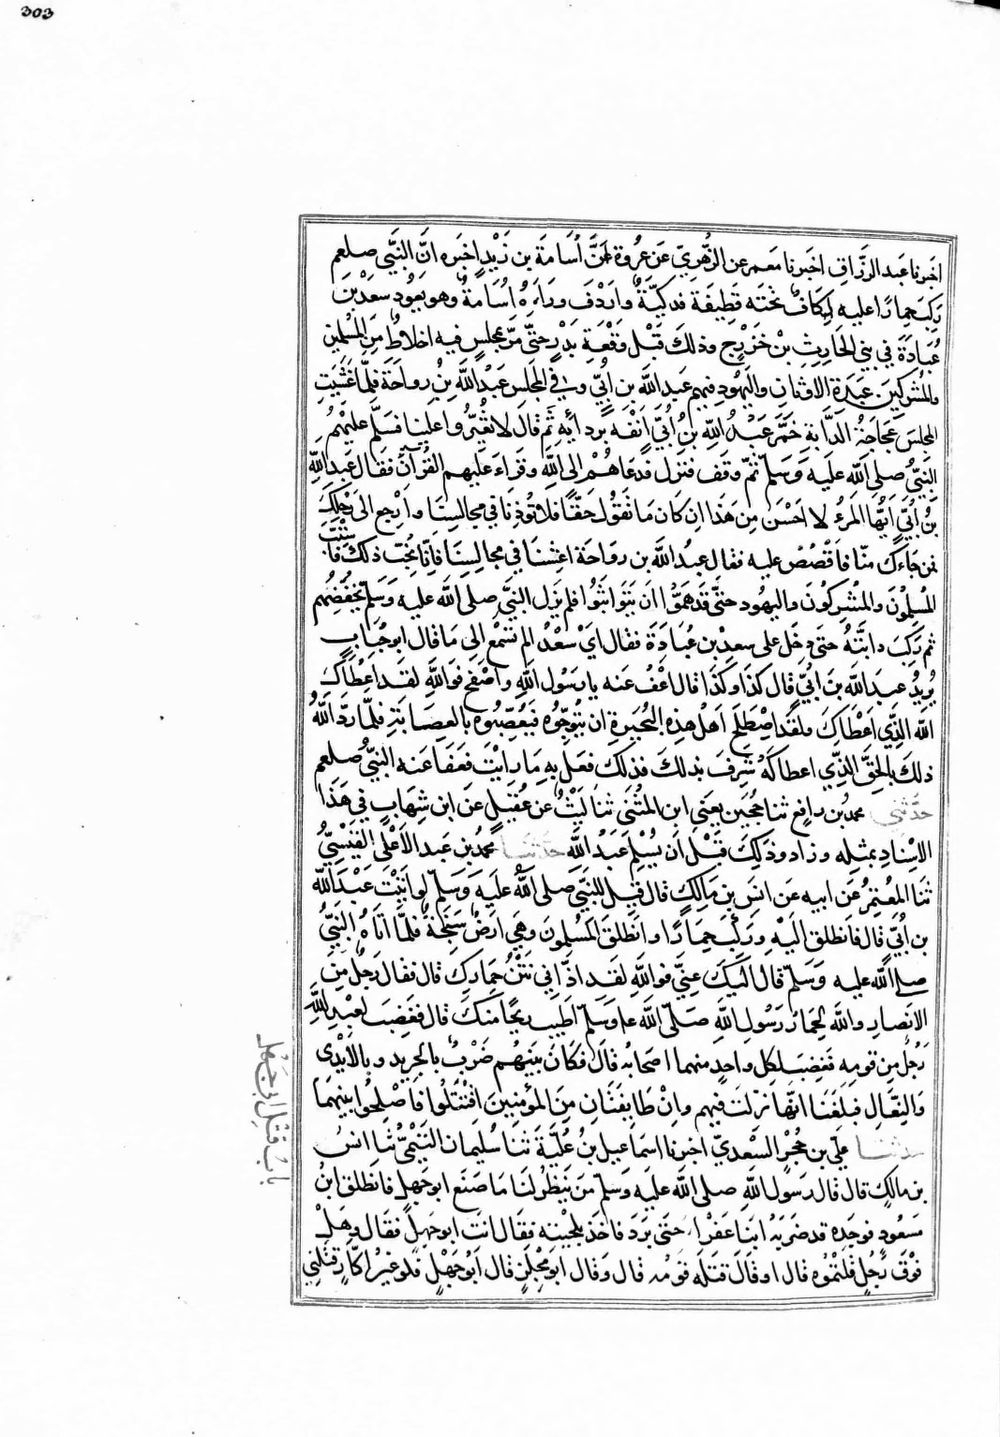 303
اخبرنا عبد الرزاق اخبرنا معمر عن الزُّهريِّ عَن عُروة اَنَّ اُسَامَةَ بن زَيْدٍ اخبَره انَّ النَّبِيَّ صلعم
رَكِبَ حِمارًا عليه اِكافٌ تحته قَطِيفَة فدكيّةٌ واَرْدَفَ ورَاءَهُ اُسَامَةَ وهو يَعُودُ سعدَ بنَ
عُبَادَةَ في بني الحَارِثِ بْنِ خَزْرَجٍ وذلكَ قَبْلَ وَقْعَةِ بَدْرٍ حتّى مَرَّ بمجلسٍ فيه اخلاطٌ مِنَ المُسلمين
والمُشركينَ عبَدةِ الاوثانِ واليهُودِ فيهم عَبد الله بن اُبيٍّ وفي المجلس عبدُ اللَّهِ بنُ رواحَةَ فلمّا غَشِيَتِ
المجلسَ عجاجَةُ الدَّابةِ خَمَّرَ عَبْدُ اللَّهِ بنُ اُبَيٍّ اَنْفَه بردائِهِ ثم قالَ لا تُغَبِّروا علينا فسَلَّم عليهمُ
النبيُّ صلى اللّه عليه وَسَلم ثمّ وقفَ فنزل فدعاهُمْ الى اللَّهِ وقراءَ عليهم القُرآنَ فقال عَبد اللَّهِ
بنُ اُبَيٍّ اَيُّها المَرْءُ لا احْسَنَ مِن هَذَا ان كان مَا تَقُولُ حَقًّا فلا تُوذِنا في مجالسِنَا وارْجع الى رَحْلِكَ
فمن جاءَكَ منّا فاقْصُصْ عليه فقال عبدُ اللَّه بن رواحَةَ اغشنا في مجالسِنَا فانّا نُحِبُّ ذلك فاسْتَبَّ
المُسْلِمُونَ والمُشْرِكُونَ واليهود حتّى قدهَمُّوا ان يَتَواثَبُوا فلم يَزل النبيُّ صلى اللّه عليه وَسَلم يُخَفِّضُهُم
ثم رَكِبَ دابّتَهُ حتى دخَل على سعدِ بن عُبَادَةَ فقال اَيْ سَعْدُ الم تسْمَعْ الى مَا قال ابو حُبَابٍ
يُريدُ عبدَ اللَّه بنَ اُبَيٍّ قال كذا وكذا قال اعْفُ عنه يا رسُولَ اللَّهِ واصْفَحْ فواللَّهِ لقد اعْطاكَ
اللّه الذّي اَعْطاكَ ولقد اصْطَلَحَ اَهْلُ هذِه البُحيرةِ ان يُتوِّجُوه فيُعَصِّبُوه بالعِصَابَةِ فلمّا ردَّ اللَّهُ
ذلكَ بالحقِّ الذّي اعطاكَهُ شَرِقَ بذلكَ فذلكَ فعَل بِهِ مَا رايْتَ فعفَا عنه النبيُّ صلعم
حدثني محمد بن رافع ثنا حُجين يعني ابن المُثنّى ثنا لَيْثٌ عن عُقيلٍ عَن ابن شِهَابٍ في هَذَا
الاِسْنادِ بمثلِه وزاد وذَلِكَ قَبْلَ اَن يُسْلِمَ عَبدُ اللَّه حدثنا محمدُ بن عبد الاَعْلى القَيْسِيُّ
ثنا المعْتمِرُ عَن ابيه عَن انس بن مَالِكٍ قال قيلَ للنبيِّ صلى اللَّهُ عليه وَسَلم لو اتَيْتَ عَبْدَ اللَّهِ
بن اُبيٍّ قالَ فانطلق اليْهِ ورَكِبَ حِمَارًا وانطلقَ المُسلِمونَ وهي اَرضٌ سَبخةٌ فلمَّا اتاهُ النبيُّ
صلى اللَّه عليه وَسَلم قال اليكَ عنِّي فواللَّهِ لقد اذانِي نَتْنُ حِمَارِكَ قال فقال رَجُلٌ مِنَ
الانصارِ واللَّهِ لحِمَارُ رَسُولِ اللَّهِ صَلى اللَّه عليه وَسَلم اَطيبُ رِيحًا منكَ قال فغَضِبَ لعبدِ اللَّهِ
رَجُلٌ مِن قومِه فغضِبَ لكِل واحدٍ منهما اصحَابُه قالَ فكانَ بَيْنَهُم ضَرْبٌ بالجريدِ وبالاَيْدِي
والنِّعَالِ فبلغَنَا انَّها نزلت فيهم وانْ طايِفتَانِ مِنَ المؤمنِينَ اقْتتَلُوا فاَصْلِحُوا بينهما
حدثنا علي بن حُجْرٍ السَّعْديُّ اخبرنا اسماعيلُ بنُ عُليَّةَ ثنا سُليمان التَيْمِيُّ ثنا انسُ
بن مالكٍ قال قال رسُولُ اللَّهِ صلى اللَّه عليه وسَلم مَن يَنظُرُ لنَا ما صَنَع ابو جَهلٍ فانطلق ابنُ
مَسعُودٍ فوجده قد ضَرَبَهُ ابنَا عَفْراءَ حَتى بَردَ فاخَذ بلِحْيتِه فقال انتَ ابو جهلٍ فقال وهَلْ
فوْقَ رَجُلٍ قلتمُوه قال او قال قتَله قومُه قال وقال ابو مِجْلَزٍ قال ابُو جَهْلٍ فلو غيرُ اكّارٍ قتلني
باب قتل ابي جهل